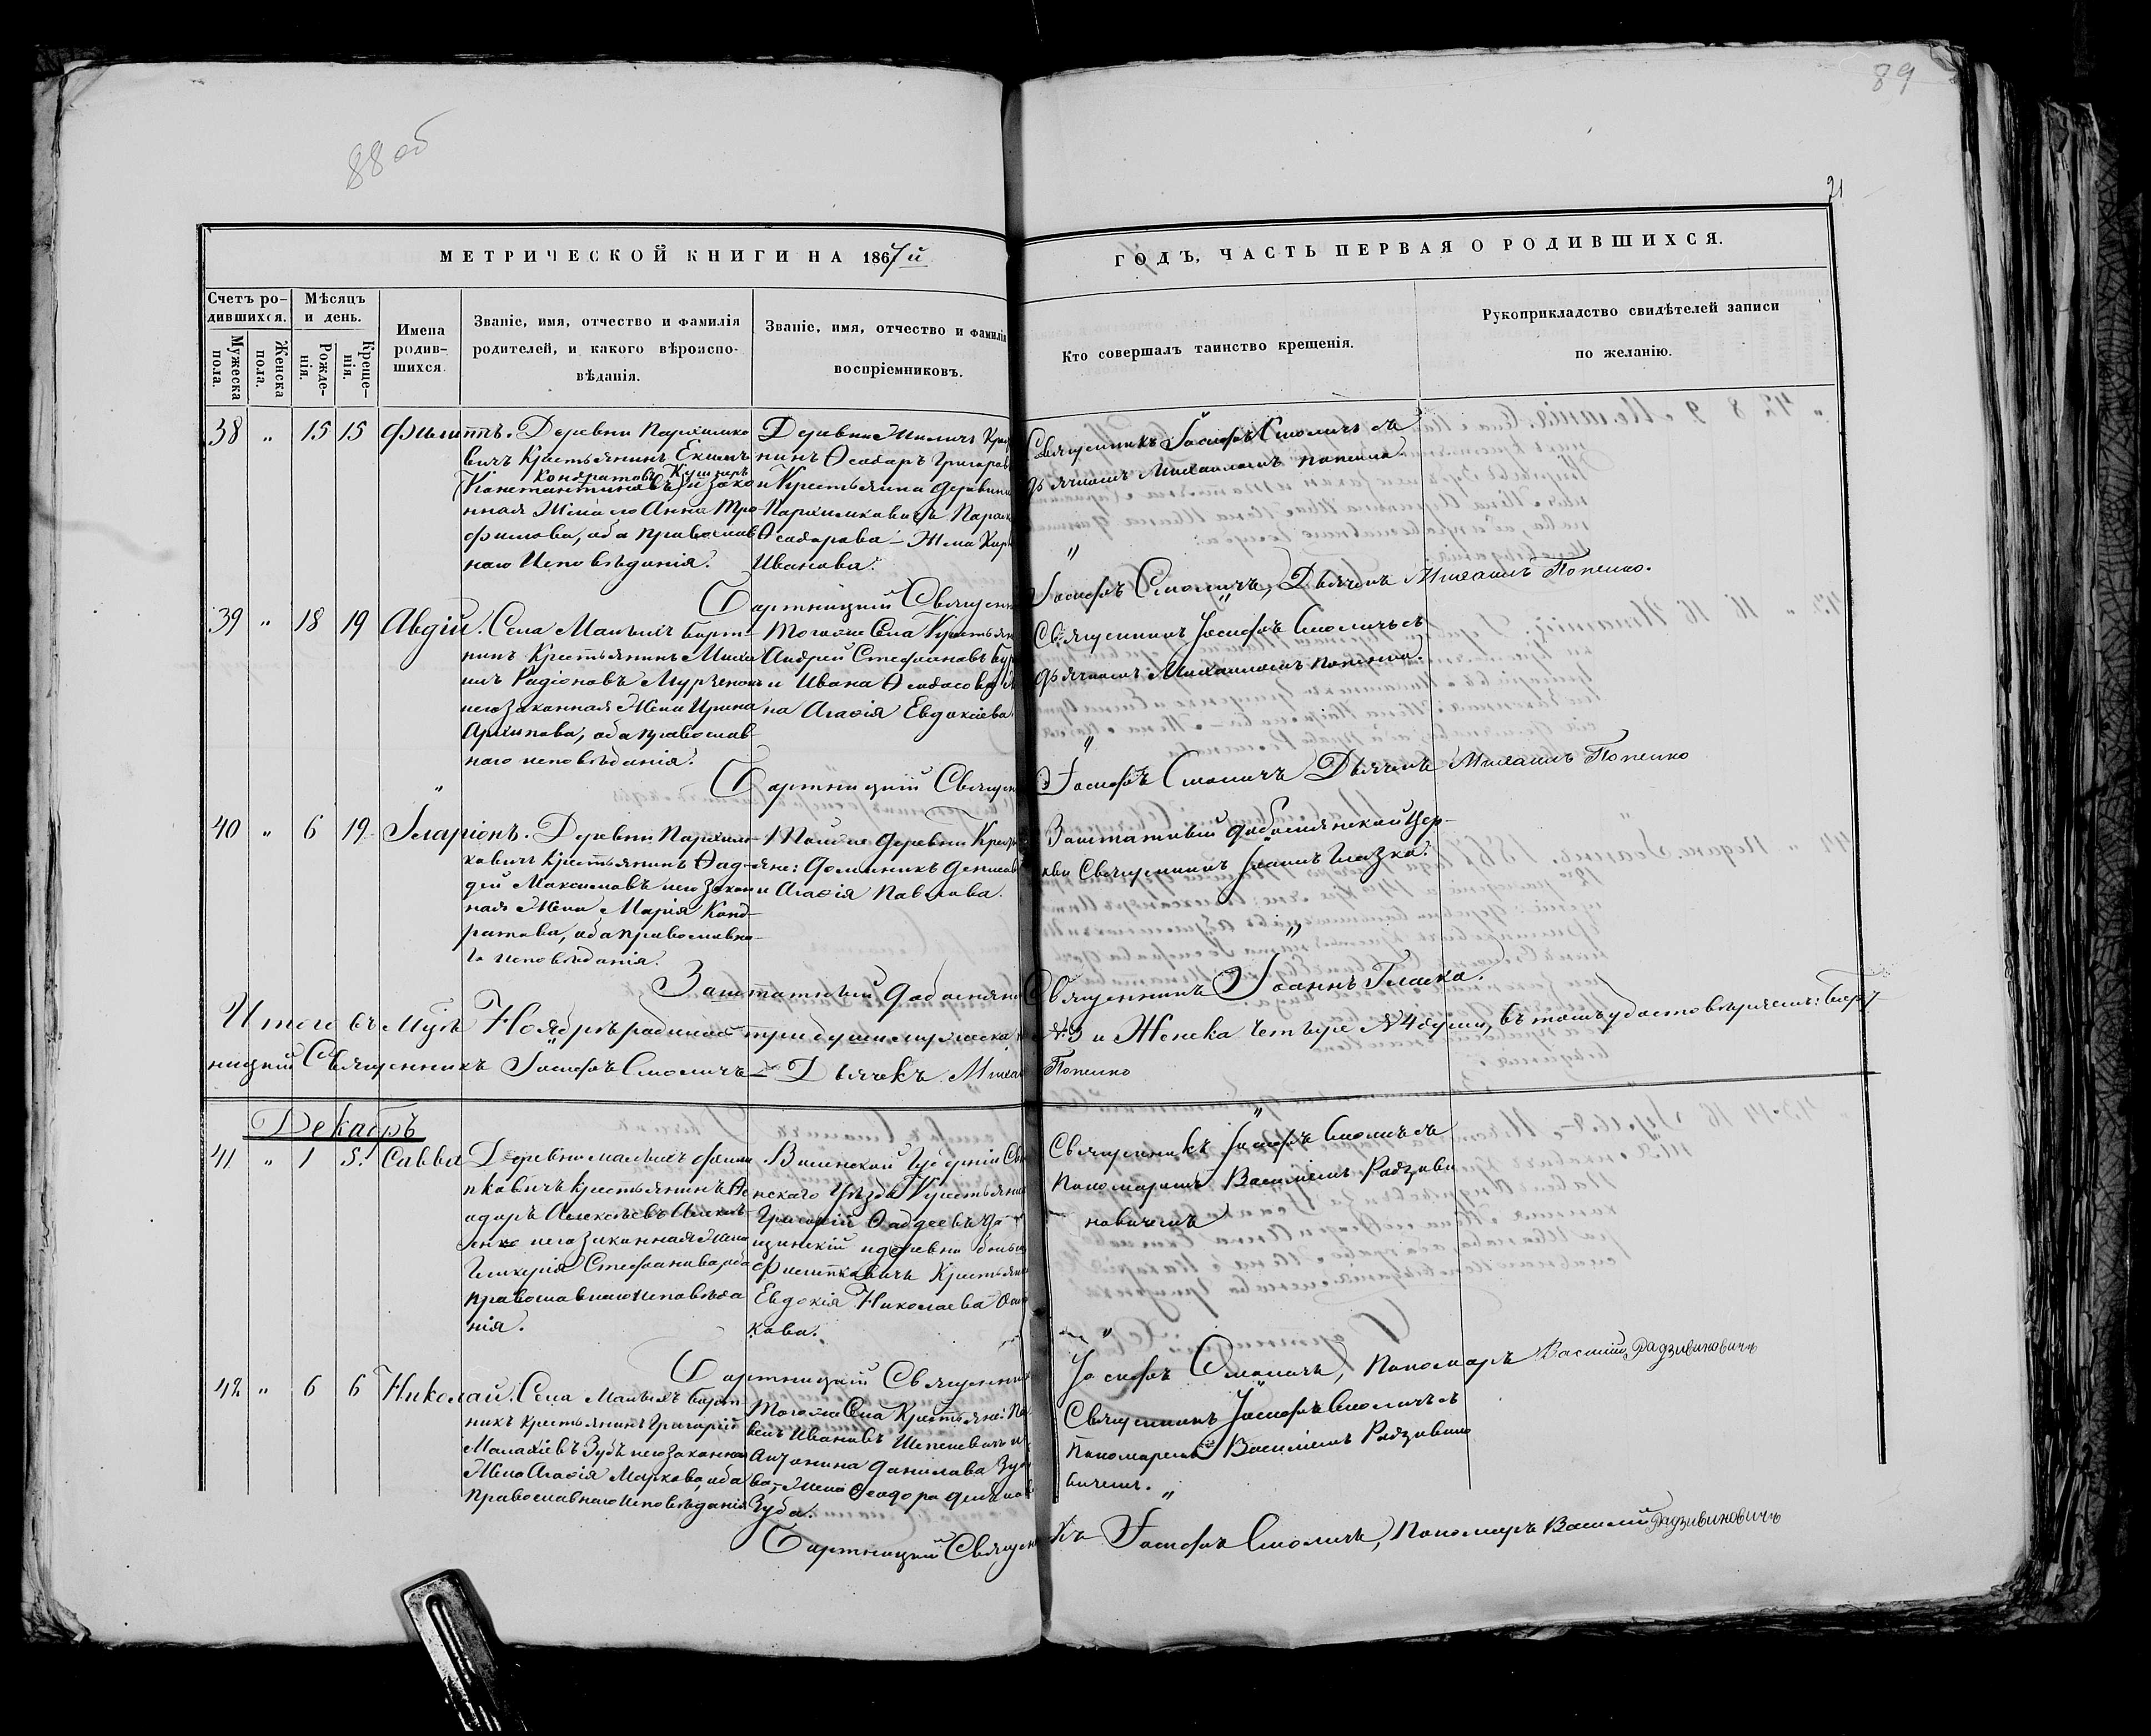 88 об
89
21
МЕТРИЧЕСКОЙ КНИГИ НА 1867й
ГОДЪ, ЧАСТЬ ПЕРВАЯ О РОДИВШИХСЯ.
Счетъ родившихся.
Мужеска пола.
Женска пола.
Мѣсяцъ и день.
Рожденія.
Крещенія.
Имена родившихся.
Званіе, имя, отчество и фамилія
родителей, и какого вѣроиспо-
вѣданія.
Званіе, имя, отчество и фамилія
воспріемниковъ.
Кто совершалъ таинство крещенія.
Рукоприкладство свидѣтелей записи
по желанію.
38 „ 15 15 Филиппъ.
Деревни Пархимко
вичъ Крестьянинъ
Кондратовъ Кушнеръ
(Константиновъ) и зако
нная Жена его Анна Тро
фимова, оба православ
наго Исповѣданія.
Деревни
нинъ Ѳеодоръ Григоровъ
и Крестьянка деревни
Пархимковичъ
Ѳеодорова – Жена
Иванова.
Священникъ Іосифъ Смоличъ съ
дьячкомъ Михаиломъ Попенко.
Бартницкій Священникъ Іосифъ Смоличъ, Дьячекъ Михаилъ Попенко.
39 „ 18 19 Авдій.
Села Малыхъ Борт-
никъ Крестьянинъ Миха
илъ Радіоновъ
него законная Жена Ирина
Архипова, оба православ-
наго исповѣданія.
Тогоже Села
Андрей Стефановъ
и Ивана
на Агафія Евдокіева.
Священникъ Іосифъ Смоличъ съ
дьячкомъ Михаиломъ Попенко.
Бартницкій Священ Іосифъ Смоличъ Дьячекъ Михаилъ Попенко
40 „ 6 19 Іларіонъ.
Деревни Пархим-
ковичъ Крестьянинъ Ѳад-
дей Максимовъ него закон
ная Жена Марія Конд-
ратова, оба православна-
го исповѣданія.
Тойже деревни
яне: Доминикъ Денисовъ
и Агафія Павлова.
Заштатный Цер-
кви Священникъ Іоаннъ Глазко.
Заштатный Священникъ Іоаннъ Гласко.
Итого въ Ноябрѣ родилось три души мужеска № 3 и Женска четыре № 4 души, въ томъ удостовѣряемъ:
ницкій Священникъ Іосифъ Смоличъ – Дьячекъ Попенко
Декабрь
41 „ 1 5. Савва
Деревни Малыхъ Филип
пковичъ Крестьянинъ Ѳе
одоръ Алексѣевъ
него законная Жена
Гликерія Стефанова, оба
православнаго исповѣда
нія.
Виленской Губерніи
нскаго Уѣзда
Григорій Ѳаддеевъ
и деревни
Филипковичъ
Евдокія Николаева
кова.
Священникъ Іосифъ Смоличъ съ
Пономаремъ Василіемъ Радзиви
новичемъ
Бартницкій Священникъ Іосифъ Смоличъ, Пономарь Василій Радзивиновичъ
42 „ 6 6 Николай.
Села Малыхъ Борт
никъ Крестьянинъ Григорій
Малахіевъ Зубъ него законная
Жена Агафія Маркова, оба
Православнаго Исповѣданія
Тогоже Села Крестьяне:
Ивановъ
Антонина Данилова
ва, – Жена Ѳеодора
Зуба.
Священникъ Іосифъ Смоличъ съ
Пономаремъ Василіемъ Радзивино
вичемъ.
Бартницкій Священникъ Іосифъ Смоличъ, Пономарь Василій Радзивиновичъ